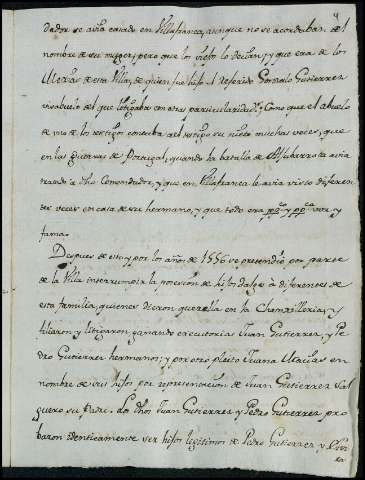 dador se avia casado en Villafranca, aunque no se acordaban del
nombre de su muger, pero que los viejos lo decian, y que era de los
de esta Villa, de quien fue hijo el referido Gonzalo Gutierrez
visabuelo del que litigaba con otras particularidades; Como que el abuelo
de uno de los testigos contaba al testigo su nieto muchas veces, que
en las guerras de Portugal, quando la batalla de Aljubarrota avia
traido a dho Comendador, y que en Villafranca le avia visto diferen-
tes veces en casa de su hermano, y que todo era pp.co y pp.ca voz y
fama.
Despues de esto y por los años de 1556 se pretendió por parte
de la Villa interrumpir la posesion de hijos dalgo à diferentes de
esta familia, quienes dieron querella en la Chancilleria, y
filiaron y litigaron, ganando executoria Juan Gutierrez, y Pe-
dro Gutierrez hermanos; y por otro pleito Juana Macias en
nombre de sus hijos por representacion de Juan Gutierrez Sal-
guero su Padre. Los dhos Juan Gutierrez y Pedro Gutierrez pro-
baron identicamente ser hijos legitimos de Pedro Gutierrez y